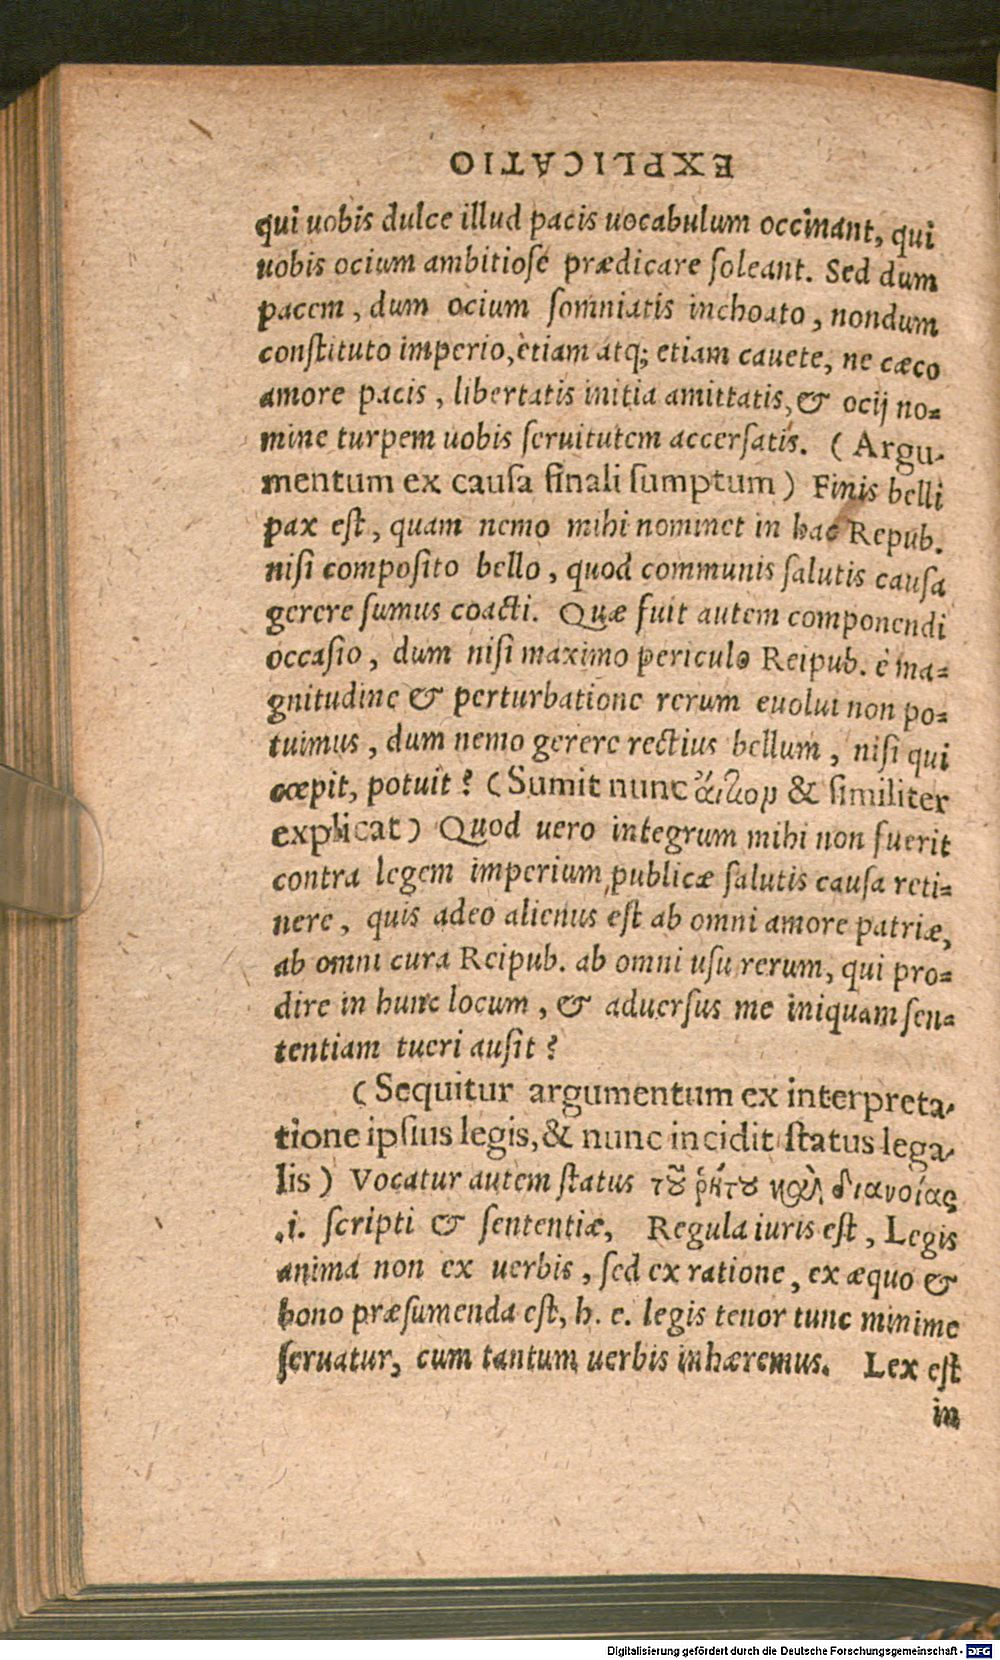 EXPLICATIO
qui uobis dulce illud pacis uocabulum occinant, qui
uobis ocium ambitiose prædicare ſoleant. Sed dum
pacem, dum ocium ſomniatis inchoato, nondum
conſtituto imperio, etiam atq; etiam cauete, ne cæco
amore pacis, libertatis initia amittatis, & ocij no=
mine turpem uobis ſeruitutem accerſatis. (Argu-
mentum ex cauſa finali ſumptum) Finis belli
pax eſt, quam nemo mihi nominet in hac Repub.
niſi compoſito bello, quod communis ſalutis cauſa
gerere ſumus coacti. Quæ fuit autem componendi
occaſio, dum niſi maximo periculo Reipub. è ma=
gnitudine & perturbatione rerum euolui non po=
tuimus, dum nemo gerere rectius bellum, niſi qui
cœpit, potuit? (Sumit nunc ἄιτιον & ſimiliter
explicat) Quod uero integrum mihi non fuerit
contra legem imperium publicæ ſalutis cauſa reti=
nere, quis adeo alienus eſt ab omni amore patriæ,
ab omni cura Reipub. ab omni uſu rerum, qui pro=
dire in hunc locum, & aduerſus me iniquam ſen=
tentiam tueri auſit?
(Sequitur argumentum ex interpreta-
tione ipſius legis, & nunc incidit ſtatus lega-
lis) Vocatur autem ſtatus τοῦ ῥητοῦ καὶ διανοίας
.i. ſcripti & ſententiæ, Regula iuris eſt, Legis
anima non ex uerbis, ſed ex ratione, ex æquo &
bono præſumenda eſt, h. e. legis tenor tunc minime
ſeruatur, cum tantum uerbis inhæremus. Lex eſt
in
Digitalisierung gefördert durch die Deutsche Forschungsgemeinschaft - DFG